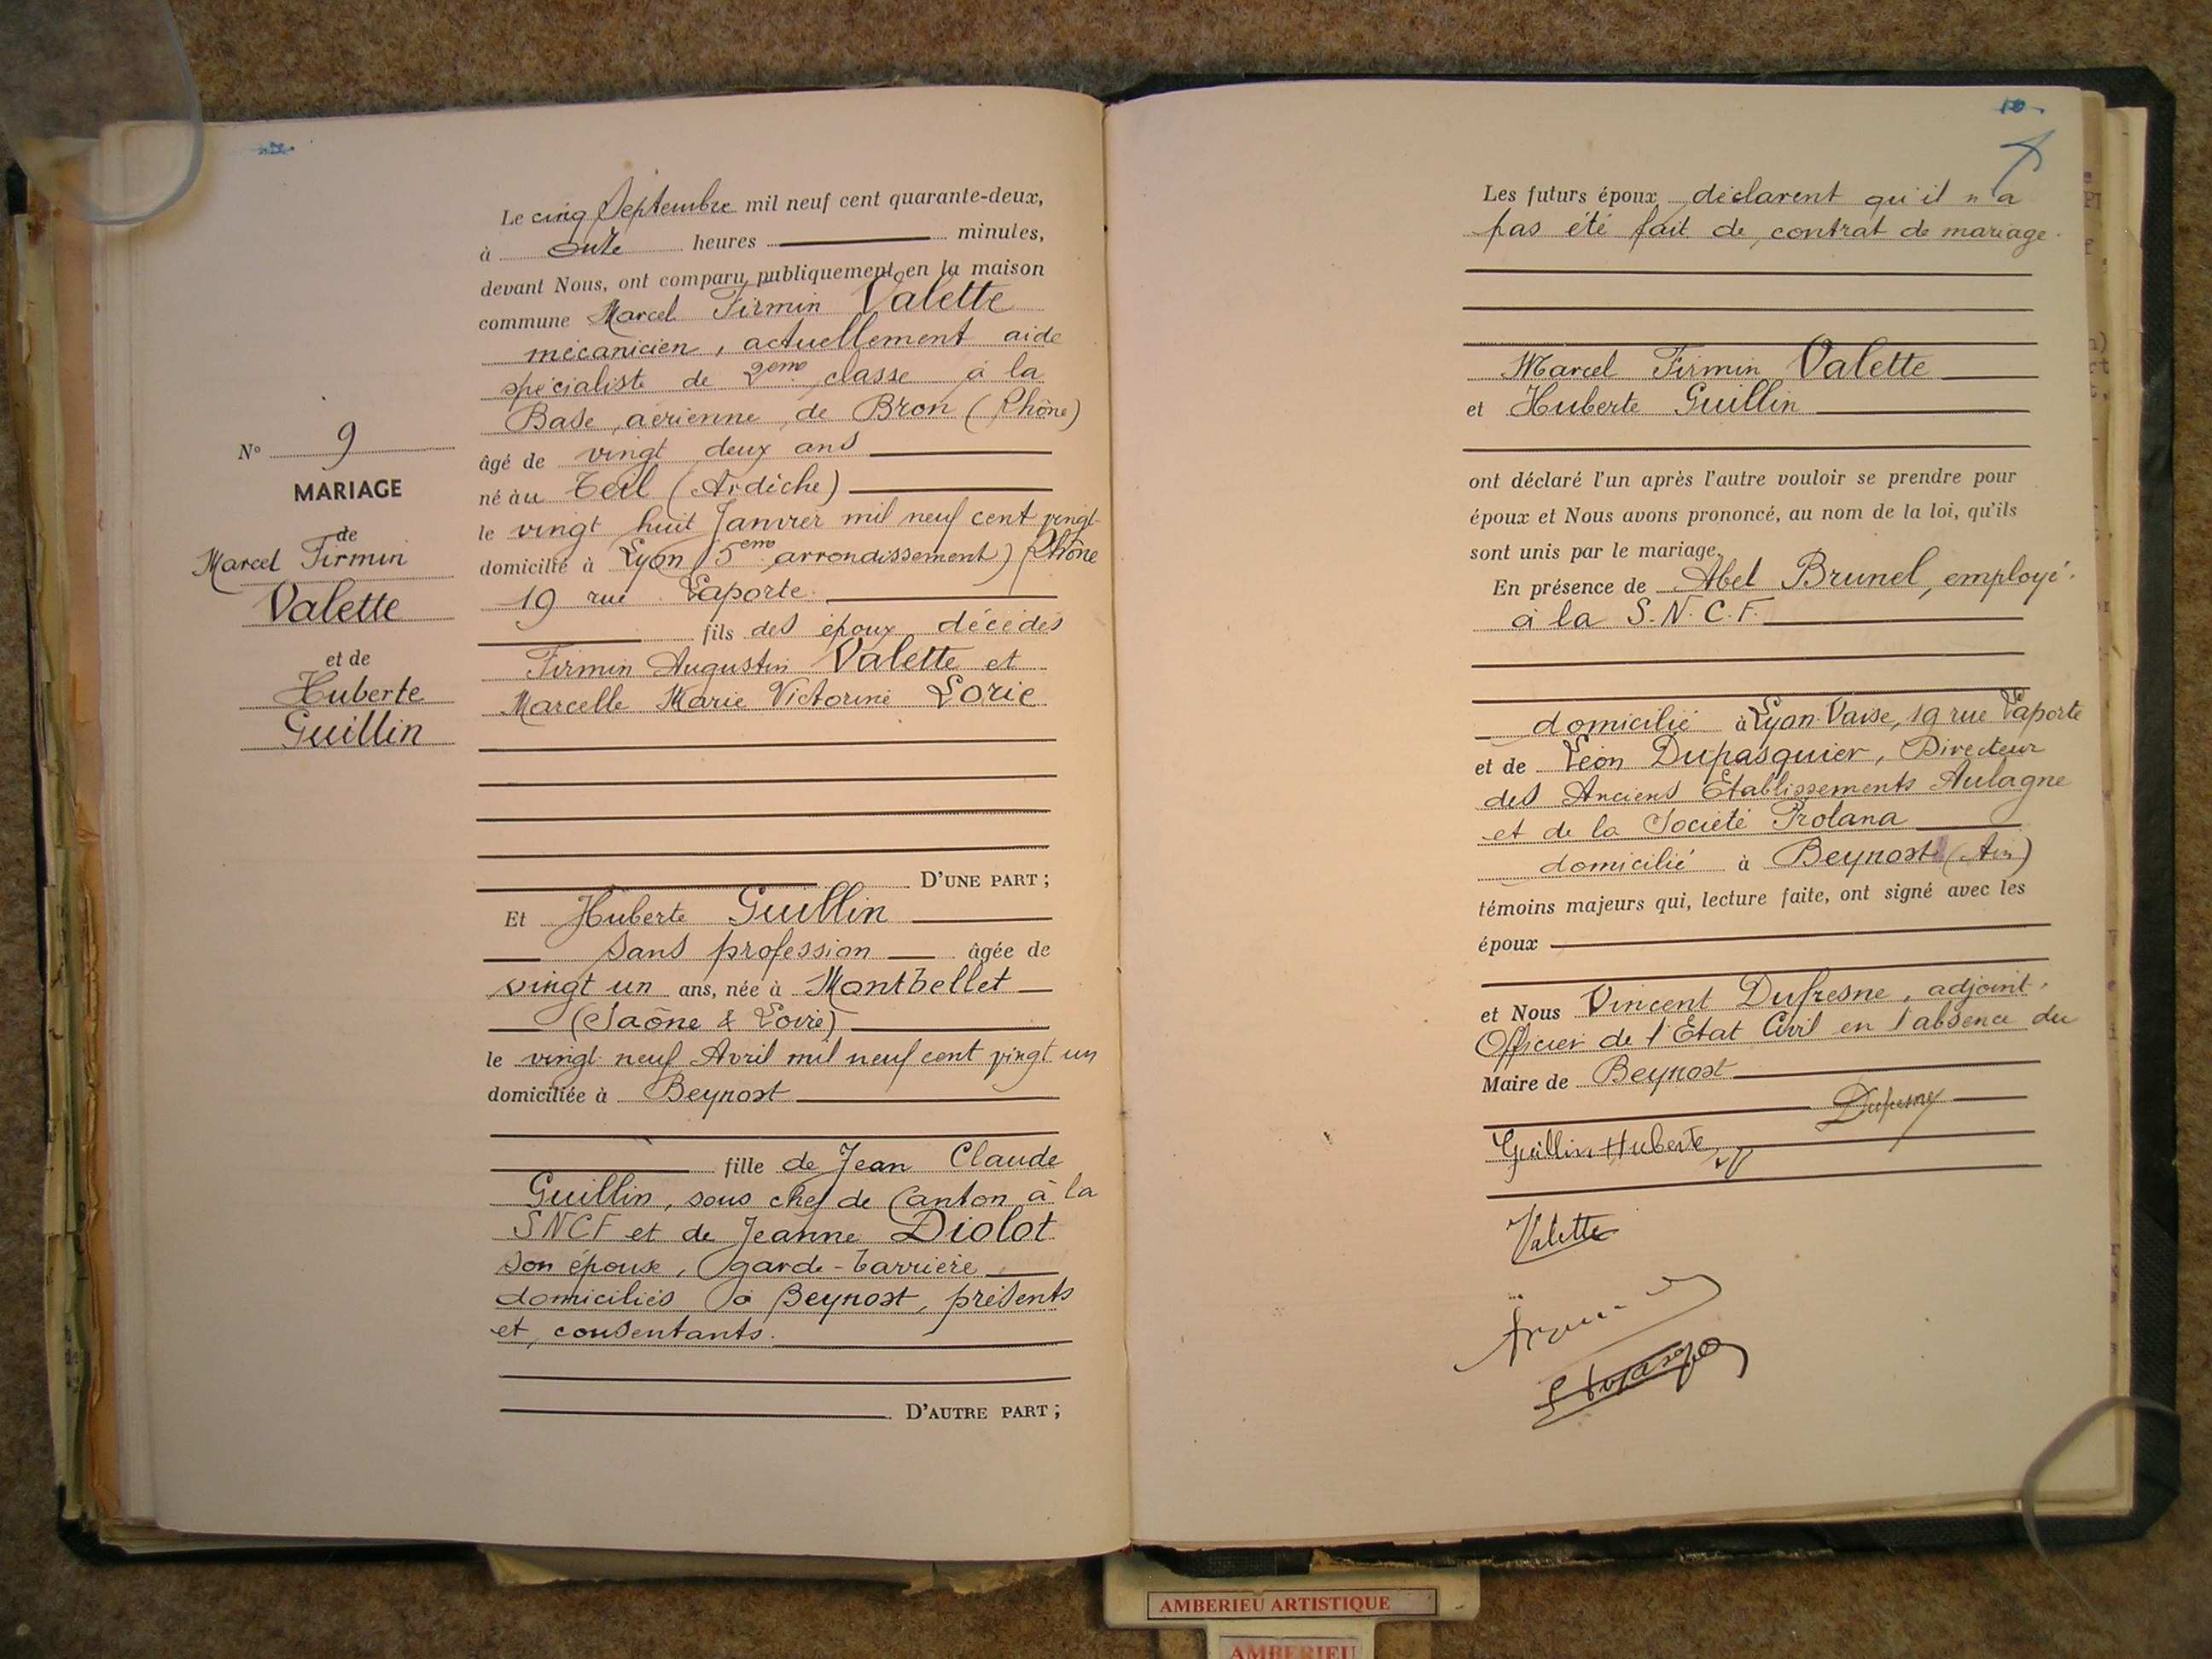 Le cinq Septembre mil neuf cent quarante-deux,
à onze heures minutes,
devant Nous, ont comparu publiquement en la maison
commune Marcel Firmin Valette
mécanicien, actuellement aide
spécialiste de 2eme classe à la
Base aérienne de Bron (Rhône)
âgé de vingt deux ans
né à u Teil (Ardèche)
le vingt huit Janvier mil neuf cent vingt
domicilié à Lyon (5eme arrondissement) (Rhône
19 rue Laporte
fils des époux décédés
Firmin Augustin Valette et
Marcelle Marie Victorine Lorie
D'UNE PART ;
N° 9
MARIAGE
de
Marcel Firmin
Valette
et de
Huberte
Guillin
Et Huberte Guillin
sans profession âgée de
vingt un ans, née à Montbellet
(Saône & Loire)
le vingt neuf Avril mil neuf cent vingt un
domiciliée à Beynost
fille de Jean Claude
Guillin, sous chef de Canton à la
SNCF et de Jeanne Diolot
son épouse, garde-barrière
domiciliés à Beynost, présents
et consentants.
D'AUTRE PART ;
10
Les futurs époux déclarent qu'il n'a
pas été fait de contrat de mariage.
Marcel Firmin Valette
et Huberte Guillin
ont déclaré l'un après l'autre vouloir se prendre pour
époux et Nous avons prononcé, au nom de la loi, qu'ils
sont unis par le mariage.
En présence de Abel Brunel, employé
à la S.N.C.F.
domicilié à Lyon-Vaise, 19 rue Laporte
et de Léon Dupasquier, Directeur
des Anciens Etablissements Aulagne
et de la Société Prolana
domicilié à Beynost (Ain)
témoins majeurs qui, lecture faite, ont signé avec les
époux
et Nous Vincent Dufresne, adjoint,
Officier de l'Etat Civil en l'absence du
Maire de Beynost
Dufresne
Guillin Huberte
Valette
AMBERIEU ARTISTIQUE
AMBERIEU